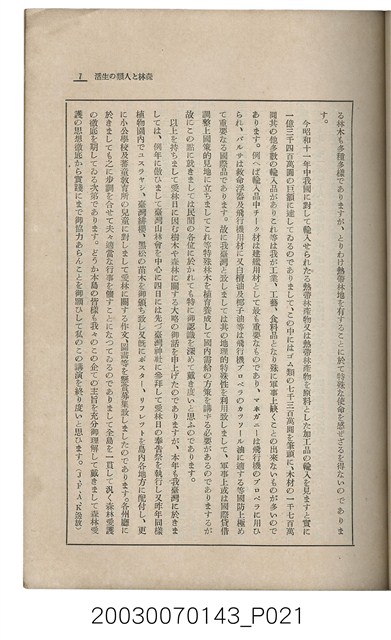 7　森林と人類の生活
る林木も多種多樣でありますが、とりわけ熱帶林地を有することに於て特殊な使命を感ずざるを得ないのでありま
す。
今昭和十一年中我國に對して輸入せられたる熱帶林產物又は熱帶林產物を原料とした加工品の輸入を見ますと實に
一億三千四百萬圓の巨額に達してゐるのでありまして、この中にはゴム類の七千三百萬圓を筆頭に、木材の一千七百萬
圓其の他多數の輸入品がありこれ等は我が工業、工藝、食料品となり殊に軍事上缺くことの出來ないものが多いので
あります。例へば輸入品中チーク材は建艦用材として最も重要なものであり、マホガニーは飛行機のプロペラに用ひ
られ、バルサは救命浮器及飛行機用材に又白檀油及椰子油等は飛行機プロペラのカツソール油に適する等國防上極め
て重要なる國際品であります。故に我臺灣と致しましては其の地理的特殊性を利用致しまして、軍事上或は國際貸借
調整上國策的見地に立ちましてこれ等特殊林木を植育養成して國內需給の方策を講ずる必要があるのでありますが
故にこの點に就きましては民間の各位に於かれても特に御認識を深めて戴き度いと思ふのであります。
以上を持ちまして愛林日に因む樹木や森林に關する大略の御話を申上げたのでありますが、本年も我臺灣に於きま
しては、例年に倣ひまして臺灣山林會を中心に四日には先づ臺灣神社に參拜して愛林日の奉告祭を執行し又昨年同樣
植物園內でエスラサシ、臺灣緋櫻、黑松の苗木を御頒ち致し又旣にポスター、リフレツトを島內各地方に配付し、更
に小公學校及蕃童敎育所の兒童に對しまして愛林に關する作文、圖畫等を懸賞募集致しましたのであります。各州廳に
於きましても之に步調を合せて夫々適當な行事を催すことになつてゐるのでありまして全島を一貫して汎く森林愛護
の徹底を期してゐる次第であります。どうか本島の皆樣も我々のこの企ての主旨を充分御理解して戴きまして森林愛
護の思想徹底から實踐にまで御協力あらんことを御願ひして私のこの講演を終り度いと思ひます。（JFAK放放）
20030070143_P021